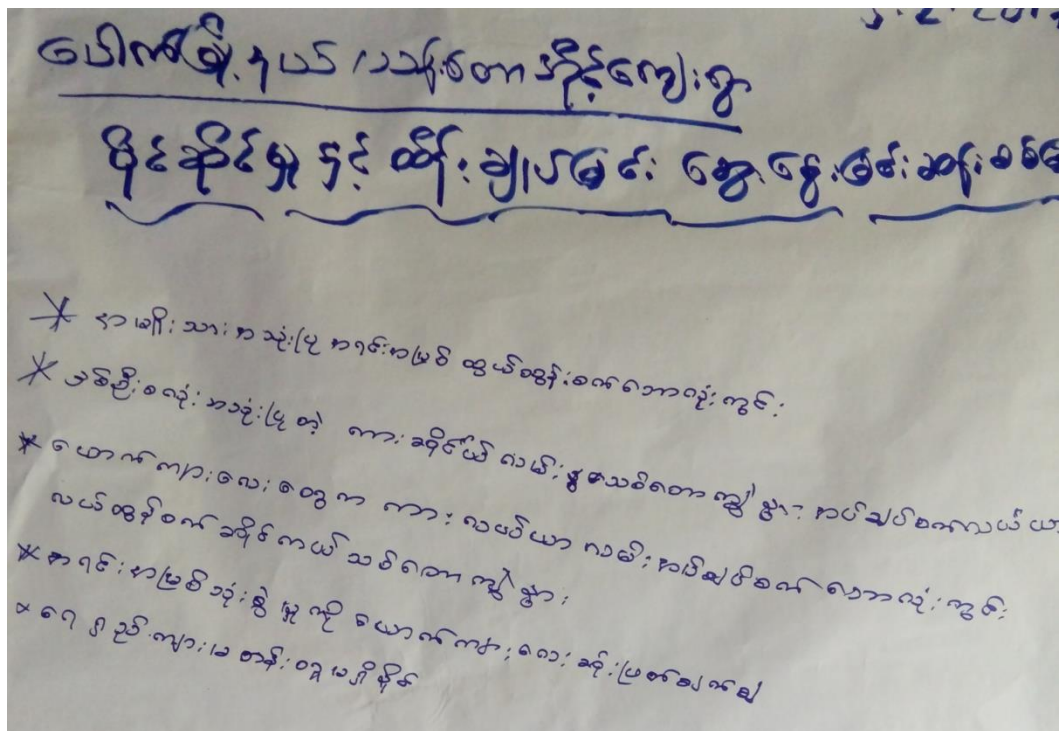 ပေါက်မြို့နယ် သစ်တောအိုင့်ကျေးရွာ
ပိုင်ဆိုင်မှု နှင့် ထိန်းချုပ်ခြင်း ဆွေးနွေးခြင်း ဆန်းစစ်
* အမျိုးသား အသုံးပြု အရင်းအမြစ် ထွယ်ထွန်းစက် ဘောလုံးကွင်း
* နှစ်ဦးစလုံး အသုံးပြုတဲ့ ကား ဆိုင်ကယ် လမ်း မွေ သစ်တော ကျွဲ နွား အပ်ချုပ်စက် လယ်ယာ
* ယောက်ကျားလေးတွေက ကား လယ်ယာ လမ်း အပ်ချုပ်စက် ဘောလုံးကွင်း
လယ်ထွန်စက် ဆိုင်ကယ် သစ်တော ကျွဲ နွား
* အရင်းအမြစ်သုံးစွဲမှုကို ယောက်ကျားလေး ဆုံးဖြတ်ချက်ချ
* ရေရှည် ကျား မ တန်း မရှိနိုင်